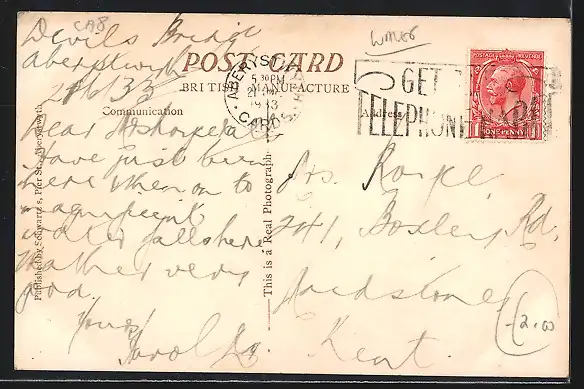 CA8
Devils Bridge
Aberystwyth
WALES
POST CARD
BRITISH MANUFACTURE
Communication
Address
ABERYSTWYTH
5 30 PM
CARDS.
GET
TELEPHONE
POSTAGE REVENUE
ONE PENNY
Dear
Have just been
here then on to
magnificent
water falls here
Weather very
good.
Yours
Published by Schwartz's, Pier St., Aberystwyth
This is a Real Photograph
Mrs.
241, Boxley Rd,
Maidstone,
Kent.
2.00